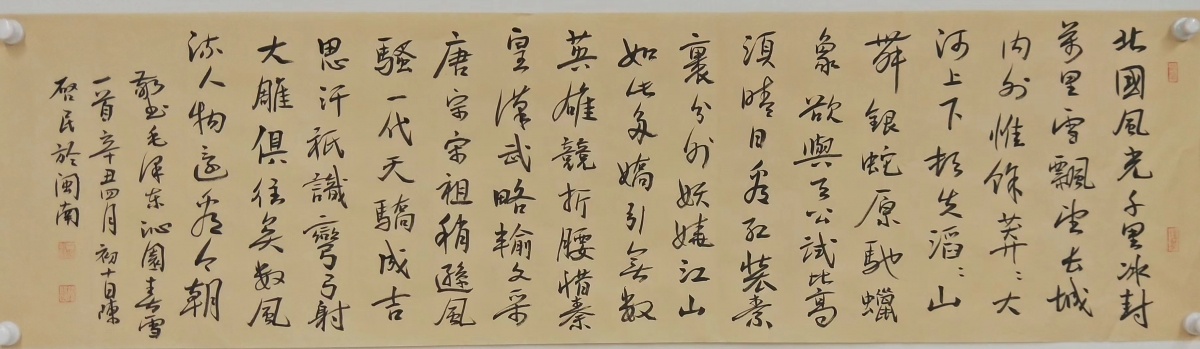 北國風光千里冰封
萬里雪飄望長城
内外惟餘莽〻大
河上下頓失滔〻山
舞銀蛇原馳蠟
象欲與天公試比高
須晴日看紅裝素
裹分外妖嬈江山
如此多嬌引無數
英雄競折腰惜秦
皇漢武略輸文采
唐宗宋祖稍遜風
騷一代天驕成吉
思汗祇識彎弓射
大雕俱往矣數風
流人物還看今朝
敬書毛澤东沁園春雪
一首辛丑四月初十日陳
啓民於閩南